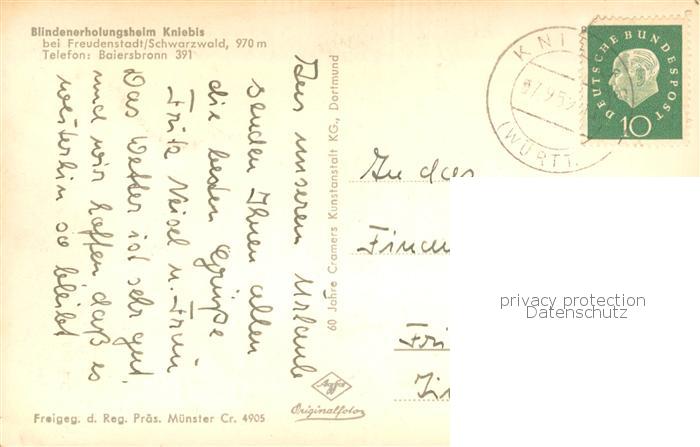 Blindenerholungsheim Kniebis
bei Freudenstadt/Schwarzwald, 970 m
Telefon: Baiersbronn 391
Aus unserem Urlaub
senden Ihnen allen
die besten Grüße
Fritz Neisel u. Frau
Das Wetter ist sehr gut
und wir hoffen daß es
weiterhin so bleibt
60 Jahre Cramers Kunstanstalt KG., Dortmund
KNI
(WÜRTT.
DEUTSCHE BUNDESPOST
10
An das
Finan
privacy protection
Datenschutz
Agfa
Originalfoto
Freigeg. d. Reg. Präs. Münster Cr. 4905